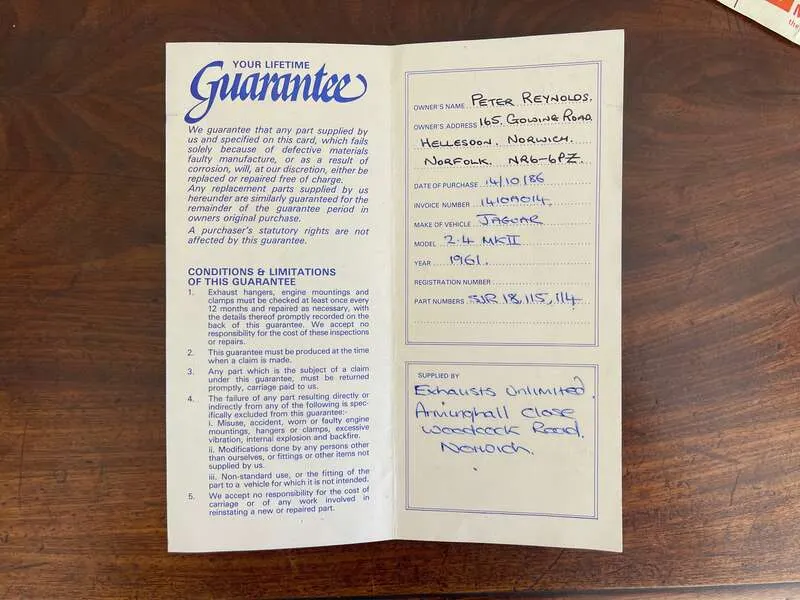 YOUR LIFETIME
Guarantee
We guarantee that any part supplied by
us and specified on this card, which fails
solely because of defective materials
faulty manufacture, or as a result of
corrosion, will, at our discretion, either be
replaced or repaired free of charge.
Any replacement parts supplied by us
hereunder are similarly guaranteed for the
remainder of the guarantee period in
owners original purchase.
A purchaser's statutory rights are not
affected by this guarantee.
CONDITIONS & LIMITATIONS
OF THIS GUARANTEE
1. Exhaust hangers, engine mountings and
clamps must be checked at least once every
12 months and repaired as necessary, with
the details thereof promptly recorded on the
back of this guarantee. We accept no
responsibility for the cost of these inspections
or repairs.
2. This guarantee must be produced at the time
when a claim is made.
3. Any part which is the subject of a claim
under this guarantee, must be returned
promptly, carriage paid to us.
4. The failure of any part resulting directly or
indirectly from any of the following is spec-
ifically excluded from this guarantee:-
i. Misuse, accident, worn or faulty engine
mountings, hangers or clamps, excessive
vibration, internal explosion and backfire.
ii. Modifications done by any persons other
than ourselves, or fittings or other items not
supplied by us.
iii. Non-standard use, or the fitting of the
part to a vehicle for which it is not intended.
5. We accept no responsibility for the cost of
carriage or of any work involved in
reinstating a new or repaired part.
OWNER'S NAME PETER REYNOLDS.
OWNER'S ADDRESS 165. GOWING ROAD.
HELLESDON. NORWICH.
NORFOLK. NR6-6PZ.
DATE OF PURCHASE 14/10/86
INVOICE NUMBER 1410A014.
MAKE OF VEHICLE JAGUAR
MODEL 2.4 MK II
YEAR 1961.
REGISTRATION NUMBER
PART NUMBERS SJR 18, 115, 114
SUPPLIED BY
Exhausts Unlimited.
Arminghall Close
Woodcock Road.
Norwich.